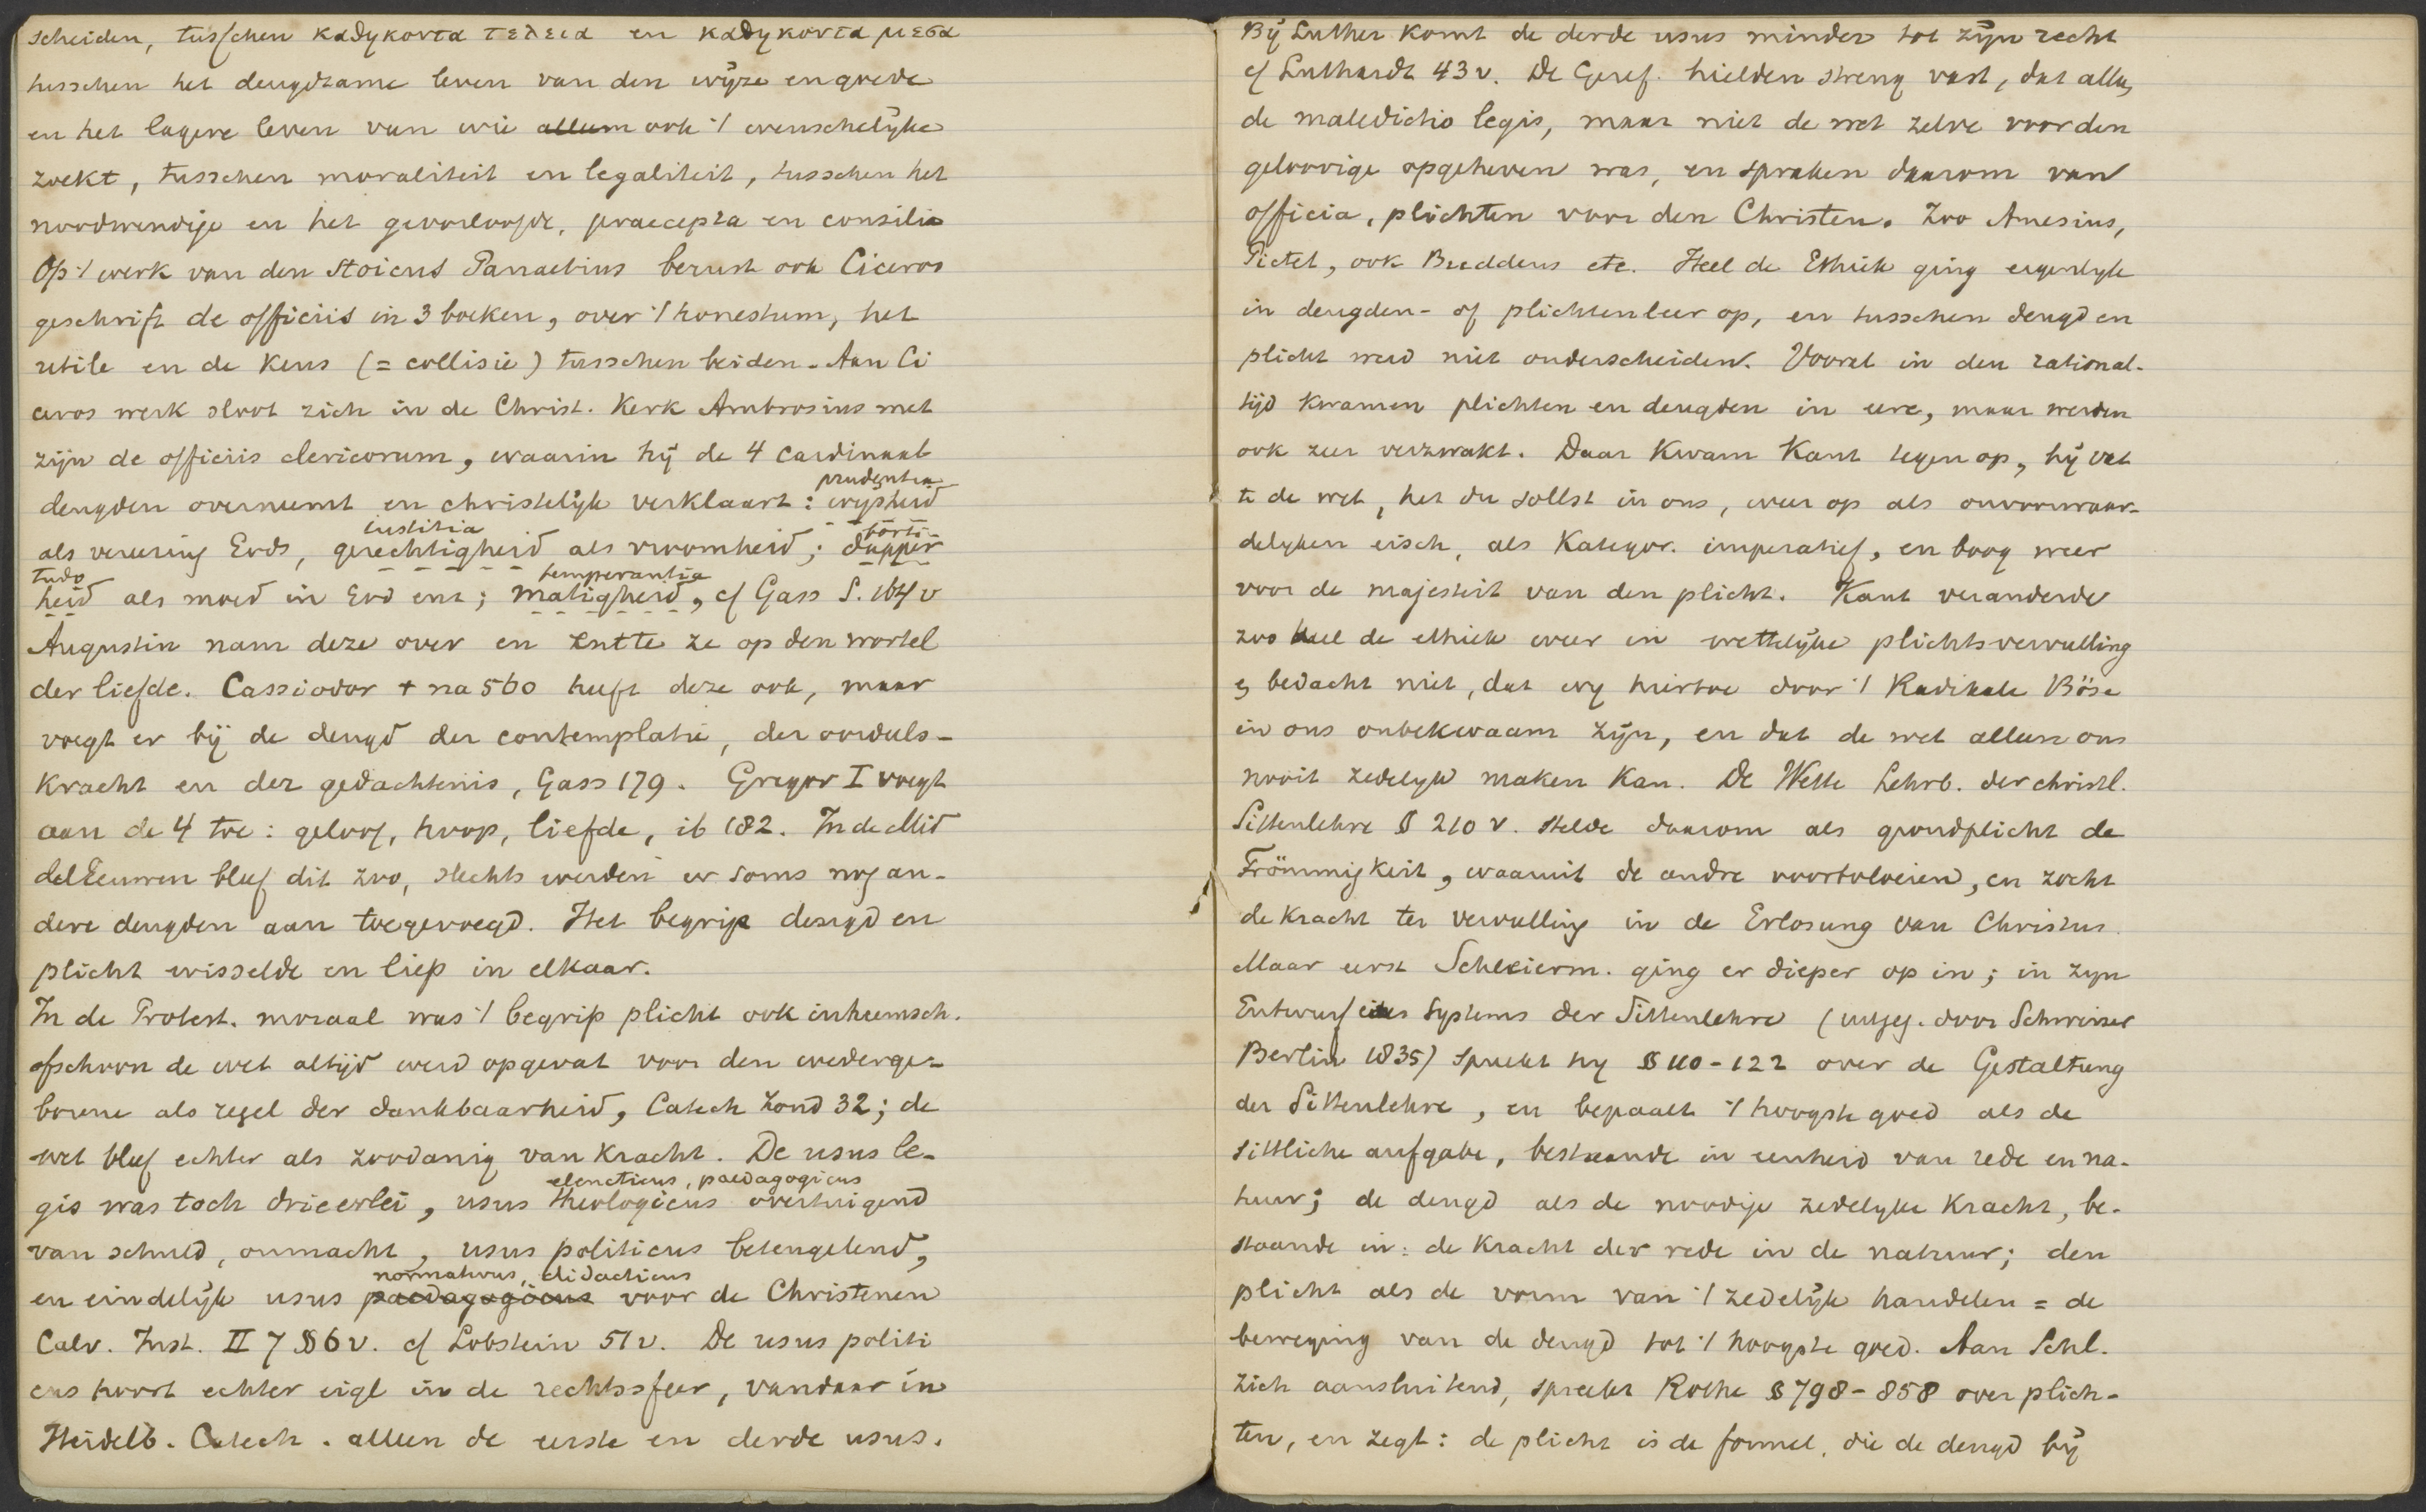 scheiden, tusschen καθηκοντα τελεια en καθηκοντα μεσα
tusschen het deugdzame leven van den wijze en goede
en het lagere leven van wie alleen ook 't wenschelijke
zoekt, tusschen moraliteit en legaliteit, tusschen het
noodwendige en het geoorloofde, praecepta en consilia
Op 't werk van den Stoicus Panaetius berust ook Ciceros
geschrift de officiis in 3 boeken, over 't honestum, het
utile en de keus (= collisie) tusschen beiden. Aan Ci
ceros werk sloot zich in de Christ. Kerk Ambrosius met
zijn de officiis clericorum, waarin hij de 4 cardinaal
prudentia
deugden overneemt en christelijk verklaart: wysheid
iustitia forti-
als vereering Gods, gerechtigheid als vroomheid; dapper
tudo temperantia
heid als moed in God enz; matigheid, cf Gass S. 164 v
Augustin nam deze over en zette ze op den wortel
der liefde. Cassiodor + na 560 heeft deze ook, maar
voegt er bij de deugd der contemplatie, der oordeels-
kracht en der gedachtenis, Gass 179. Gregor I voegt
aan de 4 toe: geloof, hoop, liefde, ib 182. In de Mid
delEeuwen bleef dit zoo, slechts werden er soms nog an-
dere deugden aan toegevoegd. Het begrip deugd en
plicht wisselde en liep in elkaar.
In de Protest. moraal was 't begrip plicht ook inheemsch.
ofschoon de wet altijd werd opgevat voor den wederge-
borene als regel der dankbaarheid, Catech Zond 32; de
wet bleef echter als zoodanig van kracht. De usus le-
elencticus, paedagogicus
gis was toch drieerlei, usus theologicus overtuigend
van schuld, onmacht, usus politicus beteugelend,
normativus, didacticus
en eindelijk usus paedagogicus voor de Christenen
Calv. Inst. II 7 §6 v. cf Lobstein 51 v. De usus politi
cus hoort echter eigl in de rechtssfeer, vandaar in
Heidelb. Catech. alleen de eerste en derde usus.
Bij Luther komt de derde usus minder tot zijn recht
cf Luthardt 43 v. De Geref. hielden streng vast, dat alleen
de maledictio legis, maar niet de wet zelve voor den
geloovige opgeheven was, en spraken daarom van
officia, plichten voor den Christen. Zoo Amesius,
Pictet, ook Buddeus etc. Heel de Ethiek ging eigenlyk
in deugden- of plichtenleer op, en tusschen deugd en
plicht werd niet onderscheiden. Vooral in den rational-
tijd kwamen plichten en deugden in eere, maar werden
ook zeer verzwakt. Daar kwam Kant tegen op, hij vat
te de wet, het du sollst in ons, weer op als onvoorwaar-
delyken eisch, als Kategor. imperatief, en boog weer
voor de majesteit van den plicht. Kant veranderde
zoo heel de ethiek weer in wettelijke plichtsvervulling
en bedacht niet, dat wy hiertoe door 't Radikale Böse
in ons onbekwaam zijn, en dat de wet alleen ons
nooit zedelyk maken kan. De Wette Lehrb. der christl.
Sittenlehre § 210 v. stelde daarom als grondplicht de
Frömmigkeit, waaruit de andre voortvloeien, en zocht
de kracht ter vervulling in de Erlosung van Christus.
Maar eerst Schleierm. ging er dieper op in; in zyn
Entwurf eines Systems der Sittenlehre (uitgeg. door Schweizer
Berlin 1835) spreekt hy § 110-122 over de Gestaltung
der Sittenlehre, en bepaalt 't hoogste goed als de
sittliche aufgabe, bestaande in eenheid van rede en na-
tuur; de deugd als de noodige zedelyke kracht, be-
staande in: de kracht der rede in de natuur; den
plicht als de vorm van 't zedelijk handelen = de
beweging van de deugd tot 't hoogste goed. Aan Schl.
zich aansluitend, spreekt Rothe § 798-858 over plich-
ten, en zegt: de plicht is de formel, die de deugd bij